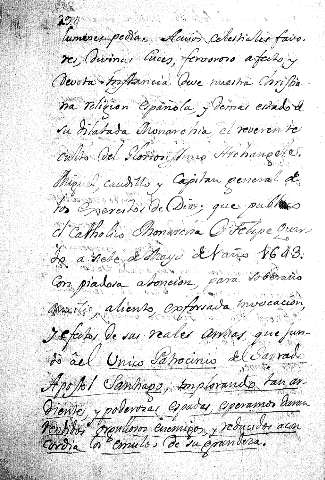 lumenes pedia. Acuios celestiales favo
res, divinas luces, fervoroso afecto y
devota instancia deve nuestra Christia
na religion Española, y demas estado de
su dilatada Monarchia el reverente
culto del Glorioso ArcHangel S.
Miguel, caudillo y Capitan general de
los Exercitos de Dios; que publico
el Catholico Monarcha D. Felipe quar
to a siete de Mayo del año 1643.
con piadosa atencion, para soberano
auxilio, aliento, exforsada invocacion,
y efectos de sus reales armas, que jun
to àel Unico Patrocinio del Sagrado
Apostol Santiago, implorando tan ar
dientes y poderosas espadas, esperamos
vencidos enemigos, y reducidos a con
cordia los emulos de su grandeza.